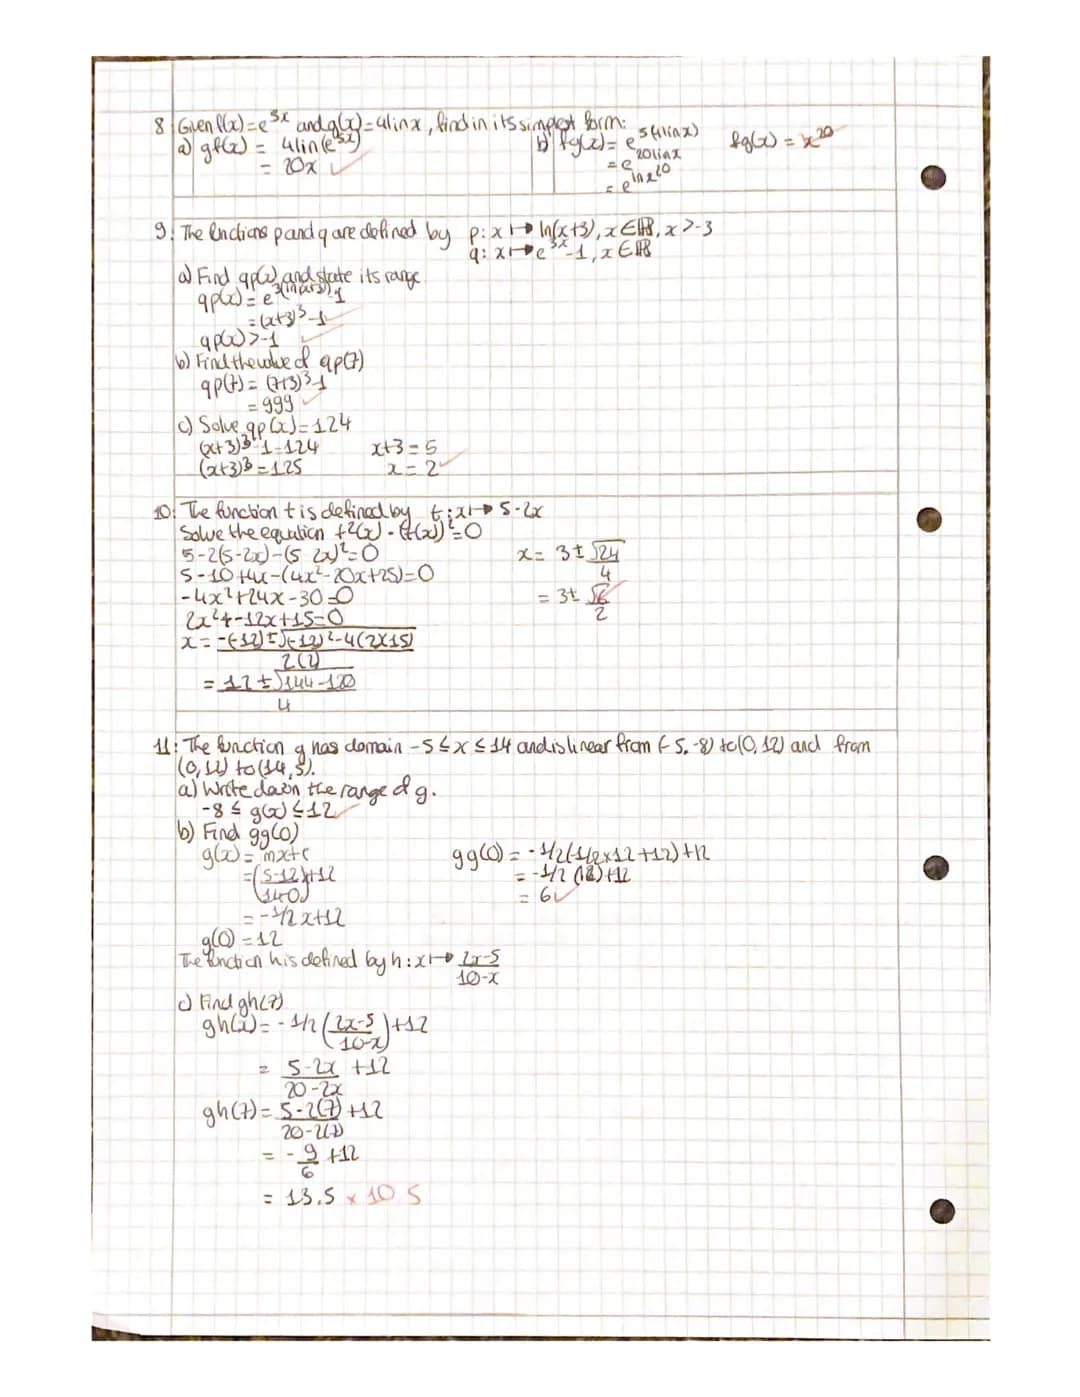 8 Given f(x)=e^5x and g(x)=4lnx, find in its simplest form:
a) gf(x) = 4ln(e^5x)
= 20x ✓
b) fg(x)= e^5(4lnx)
= e^20lnx
= e^lnx^20
fg(x) = x^20
9. The functions p and q are defined by p: x ↦ ln(x+3), x∈ℝ, x>-3
q: x ↦ e^3x-1, x∈ℝ
a) Find qp(x) and state its range
qp(x) = e^3(ln(x+3))-1
= (x+3)^3-1 ✓
qp(x)>-1 ✓
b) Find the value of qp(7)
qp(7) = (7+3)^3-1
= 999 ✓
c) Solve qp(x)=124
(x+3)^3-1=124
(x+3)^3=125
x+3=5
x=2 ✓
10. The function t is defined by t: x ↦ 5-2x
Solve the equation t^2(x) - (t(x))^2=0
5-2(5-2x)-(5 2x)^2=0
5-10+4x-(4x^2-20x+25)=0
-4x^2+24x-30=0
2x^2+-12x+15=0
x= -(-12)±√(-12)^2-4(2x15)/2(2)
= 12±√144-120/4
x= 3±√24/4
= 3±√6/2 ✓
11. The function g has domain -5≤x≤14 and is linear from (-5,-8) to (0,12) and from
(0,12) to (14,5).
a) Write down the range of g.
-8≤g(x)≤12 ✓
b) Find gg(0)
g(x) = mx+c
=(5-12/14-0)x+12
= -1/2x+12
g(0)=12
gg(0) = -1/2(-1/2x12+12)+12
= -1/2(12)+12
= 6 ✓
The function h is defined by h: x ↦ 2x-5/10-x
c) Find gh(7)
gh(x) = -1/2(2x-5/10-x)+12
= 5-2x/20-2x +12
gh(7) = 5-2(7)/20-2(7) +12
= -9/6 +12
= 13.5 × 10.5